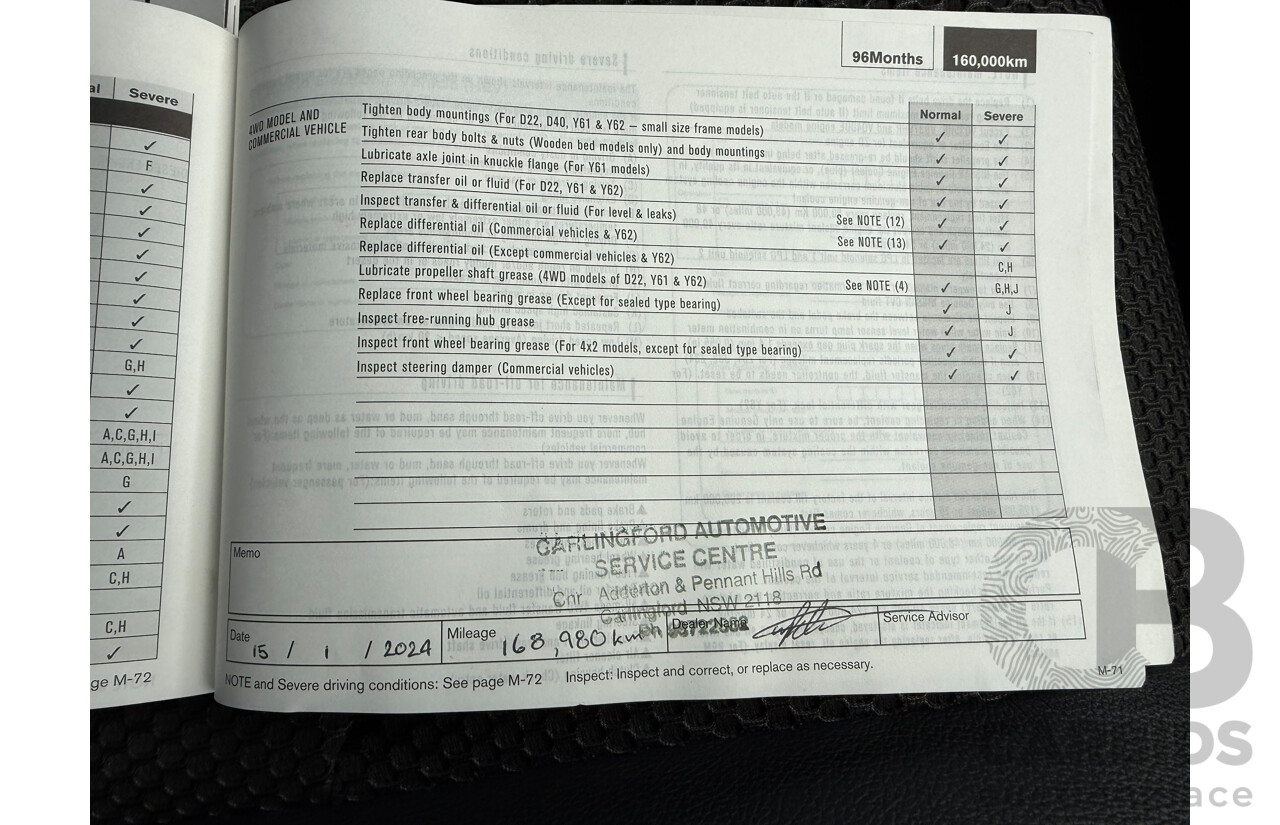 al Severe
✓
F
✓
✓
✓
✓
✓
✓
✓
✓
G,H
✓
✓
A,C,G,H,I
A,C,G,H,I
G
✓
✓
A
C,H
C,H
✓
ge M-72
96Months 160,000km
Normal Severe
4WD MODEL AND
COMMERCIAL VEHICLE
Tighten body mountings (For D22, D40, Y61 & Y62 – small size frame models) ✓ ✓
Tighten rear body bolts & nuts (Wooden bed models only) and body mountings ✓ ✓
Lubricate axle joint in knuckle flange (For Y61 models) ✓ ✓
Replace transfer oil or fluid (For D22, Y61 & Y62) ✓ ✓
Inspect transfer & differential oil or fluid (For level & leaks) See NOTE (12) ✓ ✓
Replace differential oil (Commercial vehicles & Y62) See NOTE (13) ✓ ✓
Replace differential oil (Except commercial vehicles & Y62) C,H
Lubricate propeller shaft grease (4WD models of D22, Y61 & Y62) See NOTE (4) ✓ G,H,J
Replace front wheel bearing grease (Except for sealed type bearing) ✓ J
Inspect free-running hub grease ✓ J
Inspect front wheel bearing grease (For 4x2 models, except for sealed type bearing) ✓ ✓
Inspect steering damper (Commercial vehicles) ✓ ✓
Memo
CARLINGFORD AUTOMOTIVE
SERVICE CENTRE
Cnr. Adderton & Pennant Hills Rd
Carlingford NSW 2118
Ph
Date 15 / 1 / 2024
Mileage 168,980km
Dealer Name
Service Advisor
NOTE and Severe driving conditions: See page M-72 Inspect: Inspect and correct, or replace as necessary.
M-71